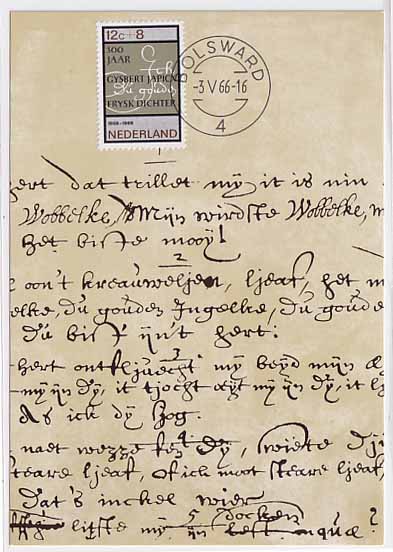 12c+8
300
JAAR
GYSBERT JAPICX
du gouden
FRYSK DICHTER
1666-1966
NEDERLAND
BOLSWARD
-3 V 66-16
4
1
hert dat trillet my it is nin
Wobbelke, Mijn wirdste Wobbelke,
het biste mooy!
2
oon't kreauweljen, ljeaf, het
elke, du gouden Ingelke, du goude
du bist ijn't hert:
3
hert ontfljuecht my beyd mijn
my ijn dy, it tjocht my ijn dy, it
As ick dy sjog.
4
naet wezze dy, swiete
steare ljeaf, of ick moot steare ljeaf,
dat's inckel wier
5 docken
lipste my ijn lest ?